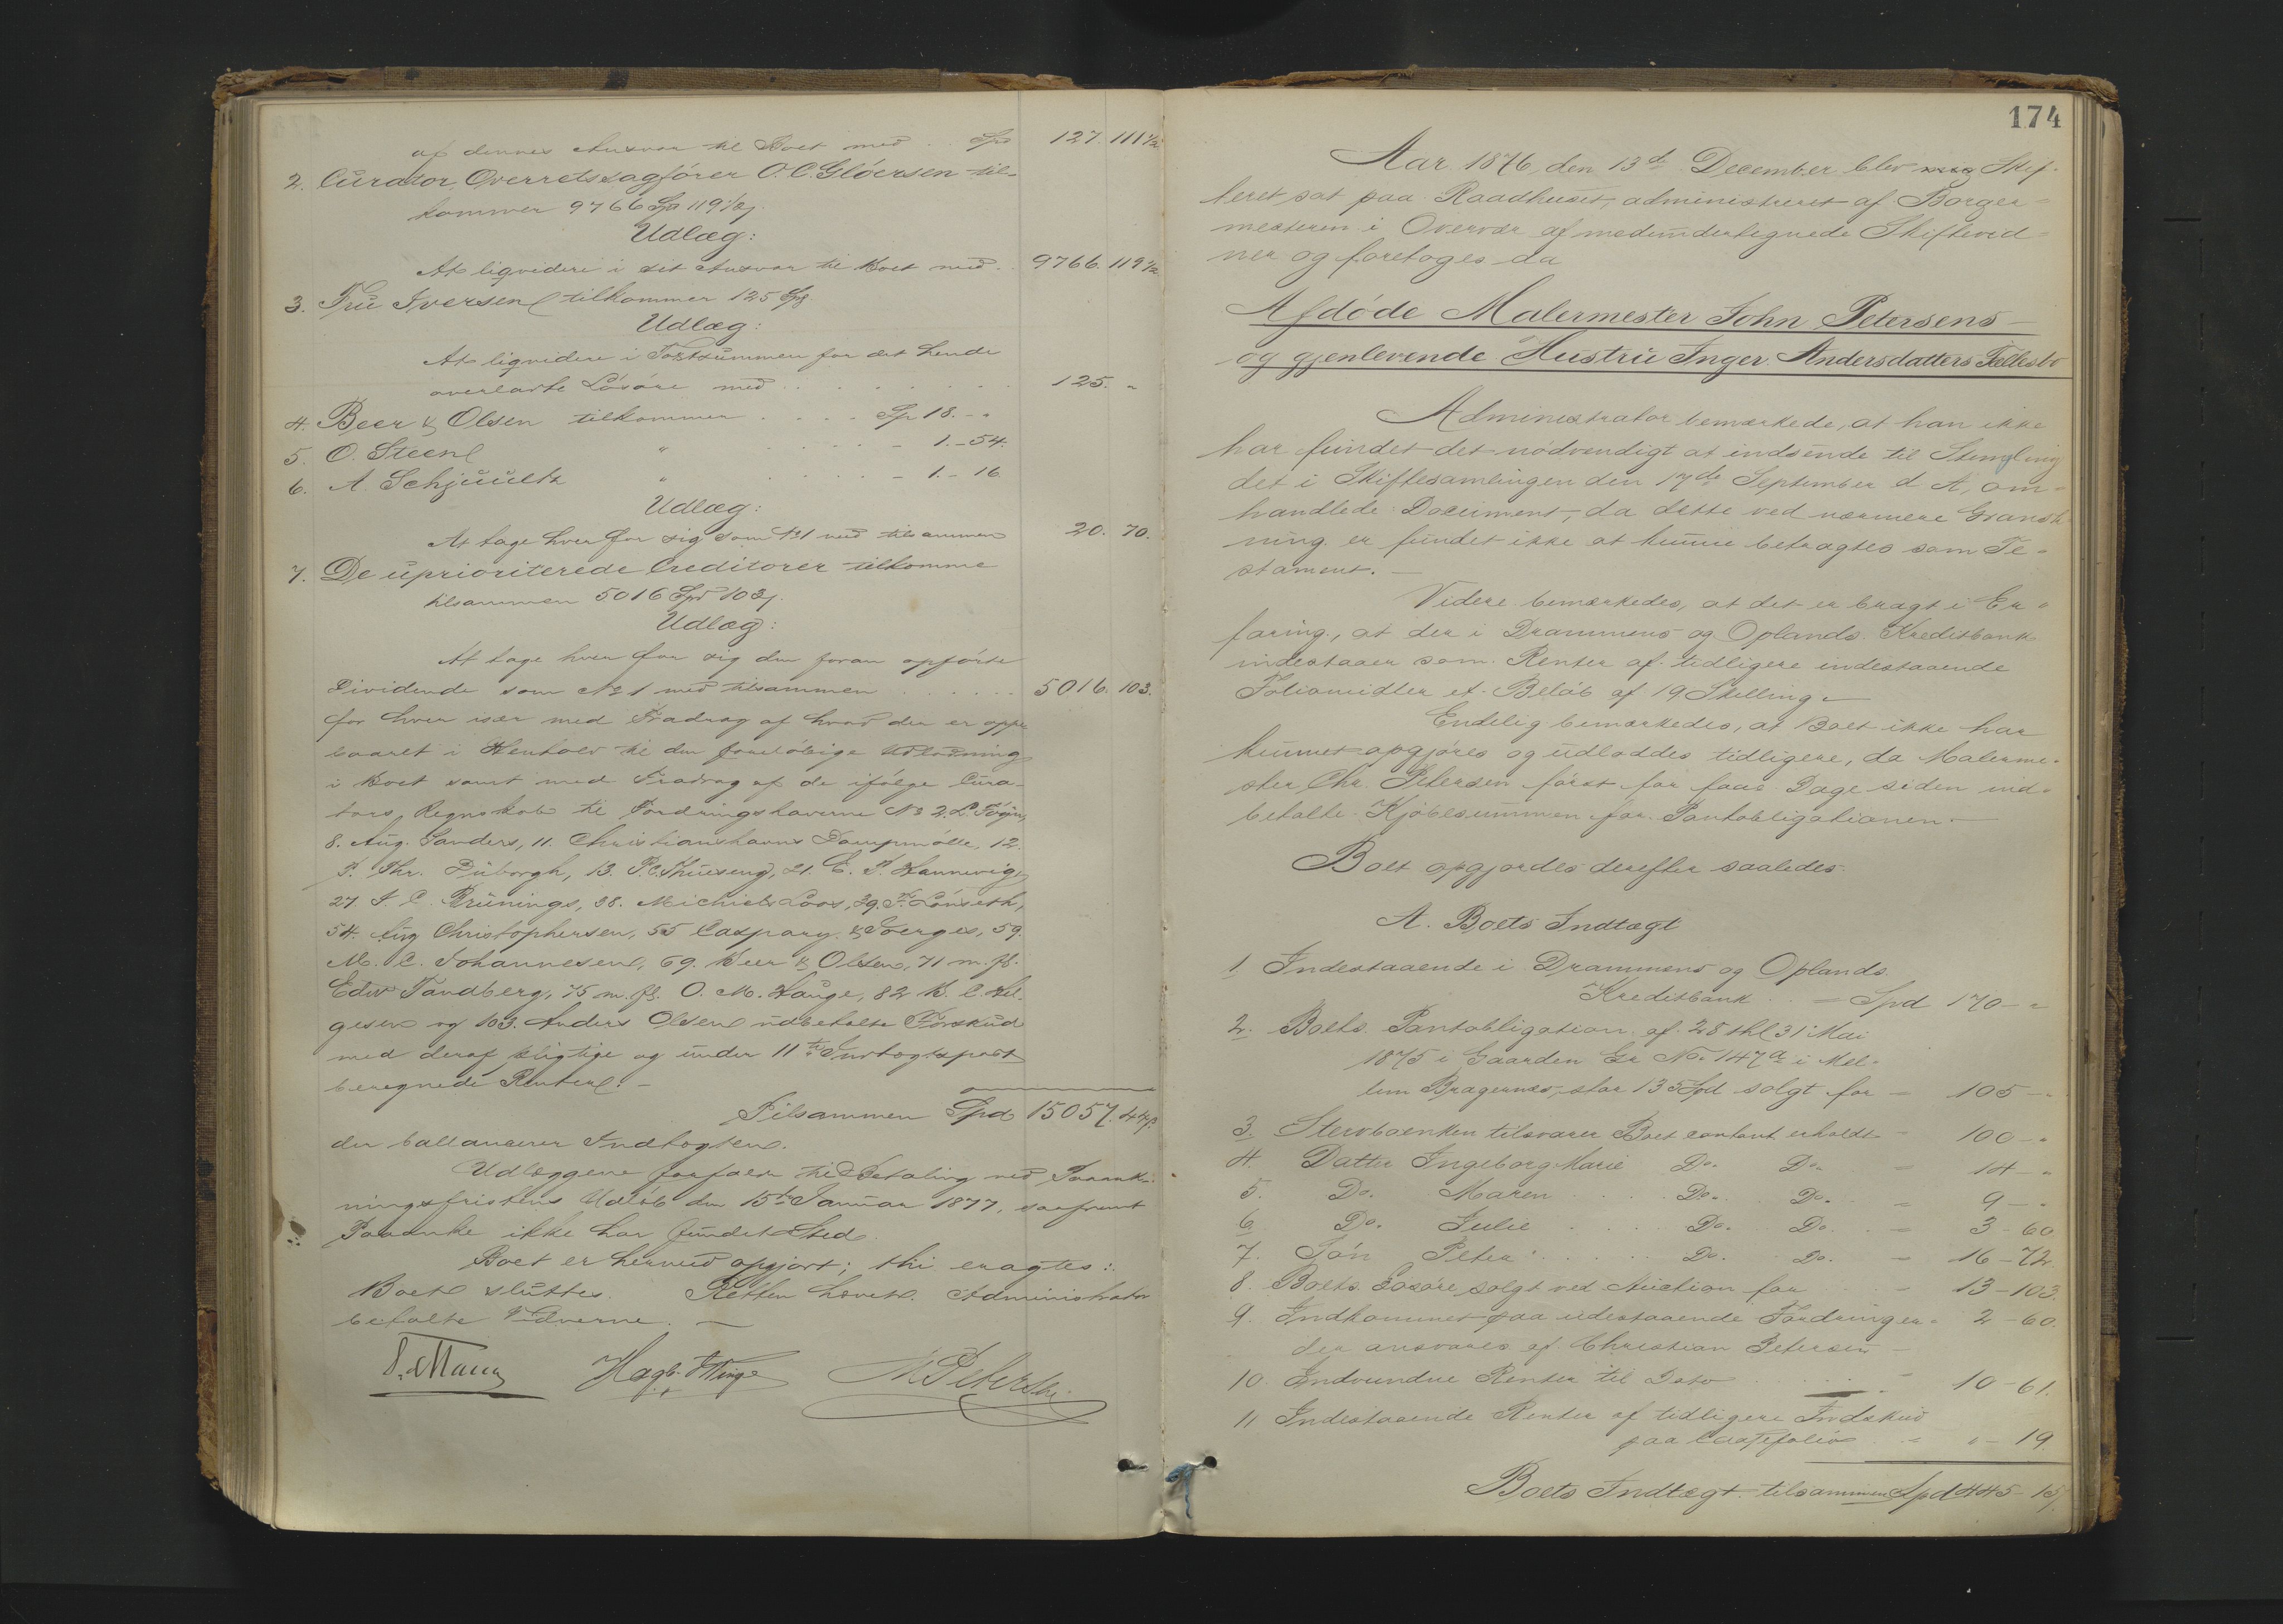 af dennes Ansvar til Boet med .. Spd 127. 111½
2. Curator, Overretssagfører O. C. Glöersen til-
kommer 9766 Spd 119½ s.
Udlæg:
At liqvidere i sit Ansvar til Boet med .. 9766. 119½
3. Fru Iversen tilkommer 125 Spd
Udlæg:
At liqvidere i Kostsummen for det hende
overladte Lösöre med . . . . . . . 125. "
4. Beer & Olsen tilkommer . . . . Sp 18. - "
5. O. Steen " . . . . - 1. - 54.
6. A. Schjuultz " . . . . - 1. - 16.
Udlæg:
At tage hver for sig som № 1 med tilsammen 20. 70.
7. De uprioriterede Creditorer tilkomme
tilsammen 5016 Spd 103 s.
Udlæg:
At tage hver for sig den foran opførte
Dividende som № 1 med tilsammen . . . . . . 5016. 103.
for hver især med Fradrag af hvad der er oppe-
baaret i Henhold til den foreløbige Udlodning
i Boet samt med Fradrag af de ifølge Cura-
tors Regnskab til Fordringshaverne № 2. L.
8. Aug. Sanders, 11. Christianshavns Dampmölle, 12.
P. Chr. Duborgh, 13. P. C. Thuesen, 21. E. F. Hannevig,
27. J. C. Brünings, 28. Michiels Loos, 29. F. Lönseth,
54. Aug Christophersen, 55 Caspary & Joerges, 59.
M. C. Johannesen, 69. Beer & Olsen, 71 m. fl.
Edw Tandberg, 75 m. fl. O. M. Hauge, 82 B. C. Hel-
gesen og 103. Anders Olsen udbetalte Forskud
med deraf pligtige og under 11te Indtægtspost
beregnede Renter. -
Tilsammen Spd 15057. 44 s.
der ballancerer Indtægten.
Udlæggene forfalde til Betaling ved Paaank-
ningsfristens Udløb den 15de Januar 1877, saafremt
Paaanke ikke har fundet Sted.
Boet er hermed opgjort; thi eragtes:
Boet sluttes. Retten hævet. Administrator
betalte Vidnerne. -
Hagb.
174
Aar 1876, den 13de December blev Skif-
teret sat paa Raadhuset, administreret af Borger-
mesteren i Overvær af medundertegnede Skiftevid-
ner og foretoges da
Afdöde Malermester John Petersens
og gjenlevende Hustru Inger Andersdatters Fællesbo
Administrator bemærkede, at han ikke
har fundet det nödvendigt at indsende til Stempling
det i Skiftesamlingen den 17de September d. A. om-
handlede Document, da dette ved nærmere Gransk-
ning er fundet ikke at kunne betragtes som Te-
stament. -
Videre bemærkedes, at det er bragt i Er-
faring, at der i Drammens og Oplands Kreditbank
indestaaer som Renter af tidligere indestaaende
Foliomidler et Belöb af 19 Skilling. -
Endelig bemærkedes, at Boet ikke har
kunnet opgjöres og udloddes tidligere, da Malerme-
ster Chr. Petersen först for faae Dage siden ind-
betalte Kjöbesummen for Pantobligationen. -
Boet opgjordes derefter saaledes.
A. Boets Indtægt
1. Indestaaende i Drammens og Oplands
Kreditbank . . = Spd 170 - "
2. Boets Pantobligation af 28 thl 31 Mai
1875 i Gaarden Gr No. 147a i Mel-
lem Bragernæs, stor 135 Spd solgt for - 105 - "
3. Stervboenken tilsvarer Boet contant erholdt - 100 - "
4. Datter Ingeborg Marie Do. Do. = 14 - "
5. Do. Maren . . . Do. Do. = 9 - "
6. Do. Julie . . . Do. Do. - 3 - 60
7. Sön Peter . . . Do. Do. - 16 - 72
8. Boets Lösöre solgt ved Auction for - 13 - 103.
9. Indkommet paa udestaaende Fordringer - 2 - 60.
der ansvares af Christian Petersen -
10. Indvundne Renter til Dato . . . - 10 - 61.
11 Indestaaende Renter af tidligere Indskud
paa Cassefolio - " - 19
Boets Indtægt tilsammen Spd 445 - 15 s.